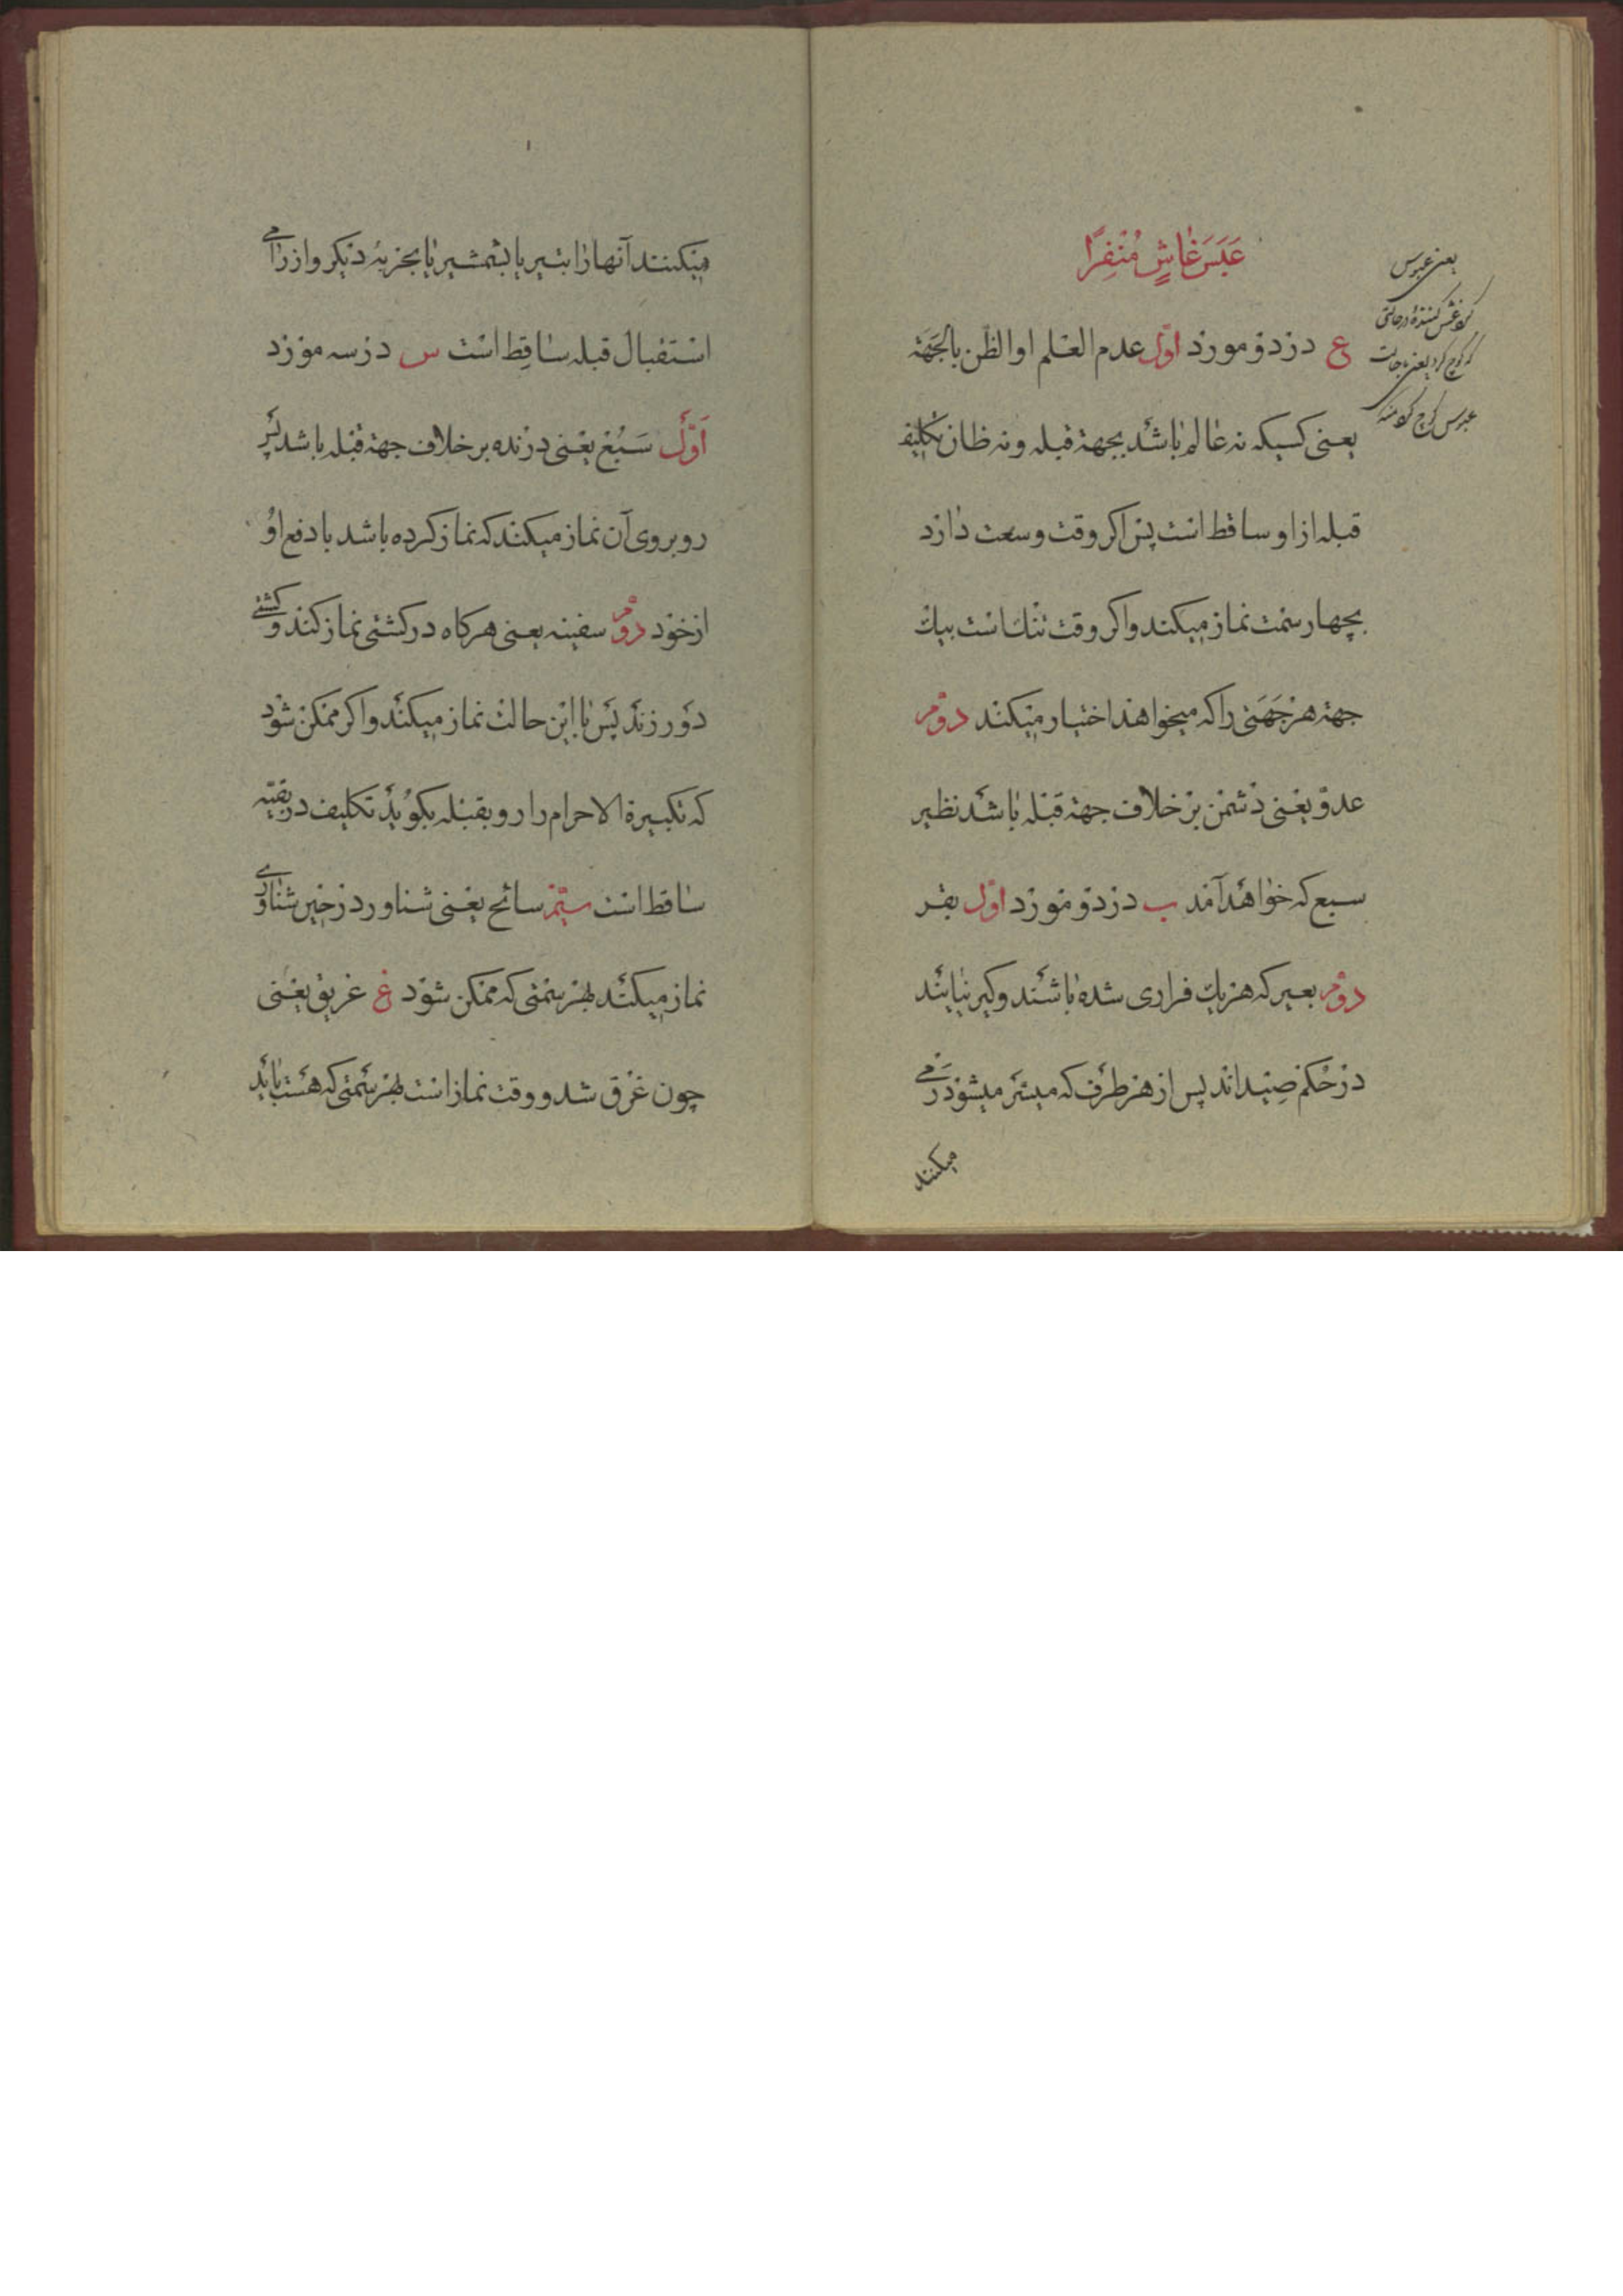 عَبَسَ غٰاشٍ مُنْفِرًا
یعنی عبوس
غش کننده در حالتی
که کوچ کرد یعنی با حالت
عبوس کوچ
ع در دو مورد اوّل عدم العلم او الظن بالجَهَة
یعنی کسیکه نه عٰالم بٰاشد بجهة قبله و نه ظان تکلیف
قبله از او ساقط است پس اکر وقت وسعت دٰارد
بچهار سمت نماز میکند و اکر وقت تنك است بیك
جهة هر جَهَتی را که میخواهد اختیار میکند دوّم
عدوّ یعنی دشمن بر خلاف جهة قبله بٰاشد نظیر
سبع که خوٰاهد آمد ب در دو مورد اوّل بقر
دوّم بعیر که هر یك فراری شده بٰاشند و کیر نیٰایند
در حُکم صیداند پس از هر طرف که میسّر میشود رَمی
میکنند
میکنند آنها رٰا بتیر یا بشمشیر یٰا بحربهٔ دیکر و از رٰامی
استقبال قبله سٰاقِط است س در سه مورد
اَوّل سَبُع یعنی درنده بر خلاف جهة قبله باشد پس
روبروی آن نماز میکند که نماز کرده باشد با دفع اوُ
از خود دوّم سفینه یعنی هرکاه در کشتی نماز کند و کشتی
دَور زند پَس بٰا این حالت نماز میکند و اکر ممکن شود
که تکبیرة الاحرام را رو بقبله بکوُید تکلیف در بقیّه
سٰاقط است سیّم سابح یعنی شناور در حین شنٰاوری
نماز میکند بهر سمتی که ممکن شود غ غریق یعنی
چون غرق شد و وقت نماز است بهر سَمتی که هست بٰاید